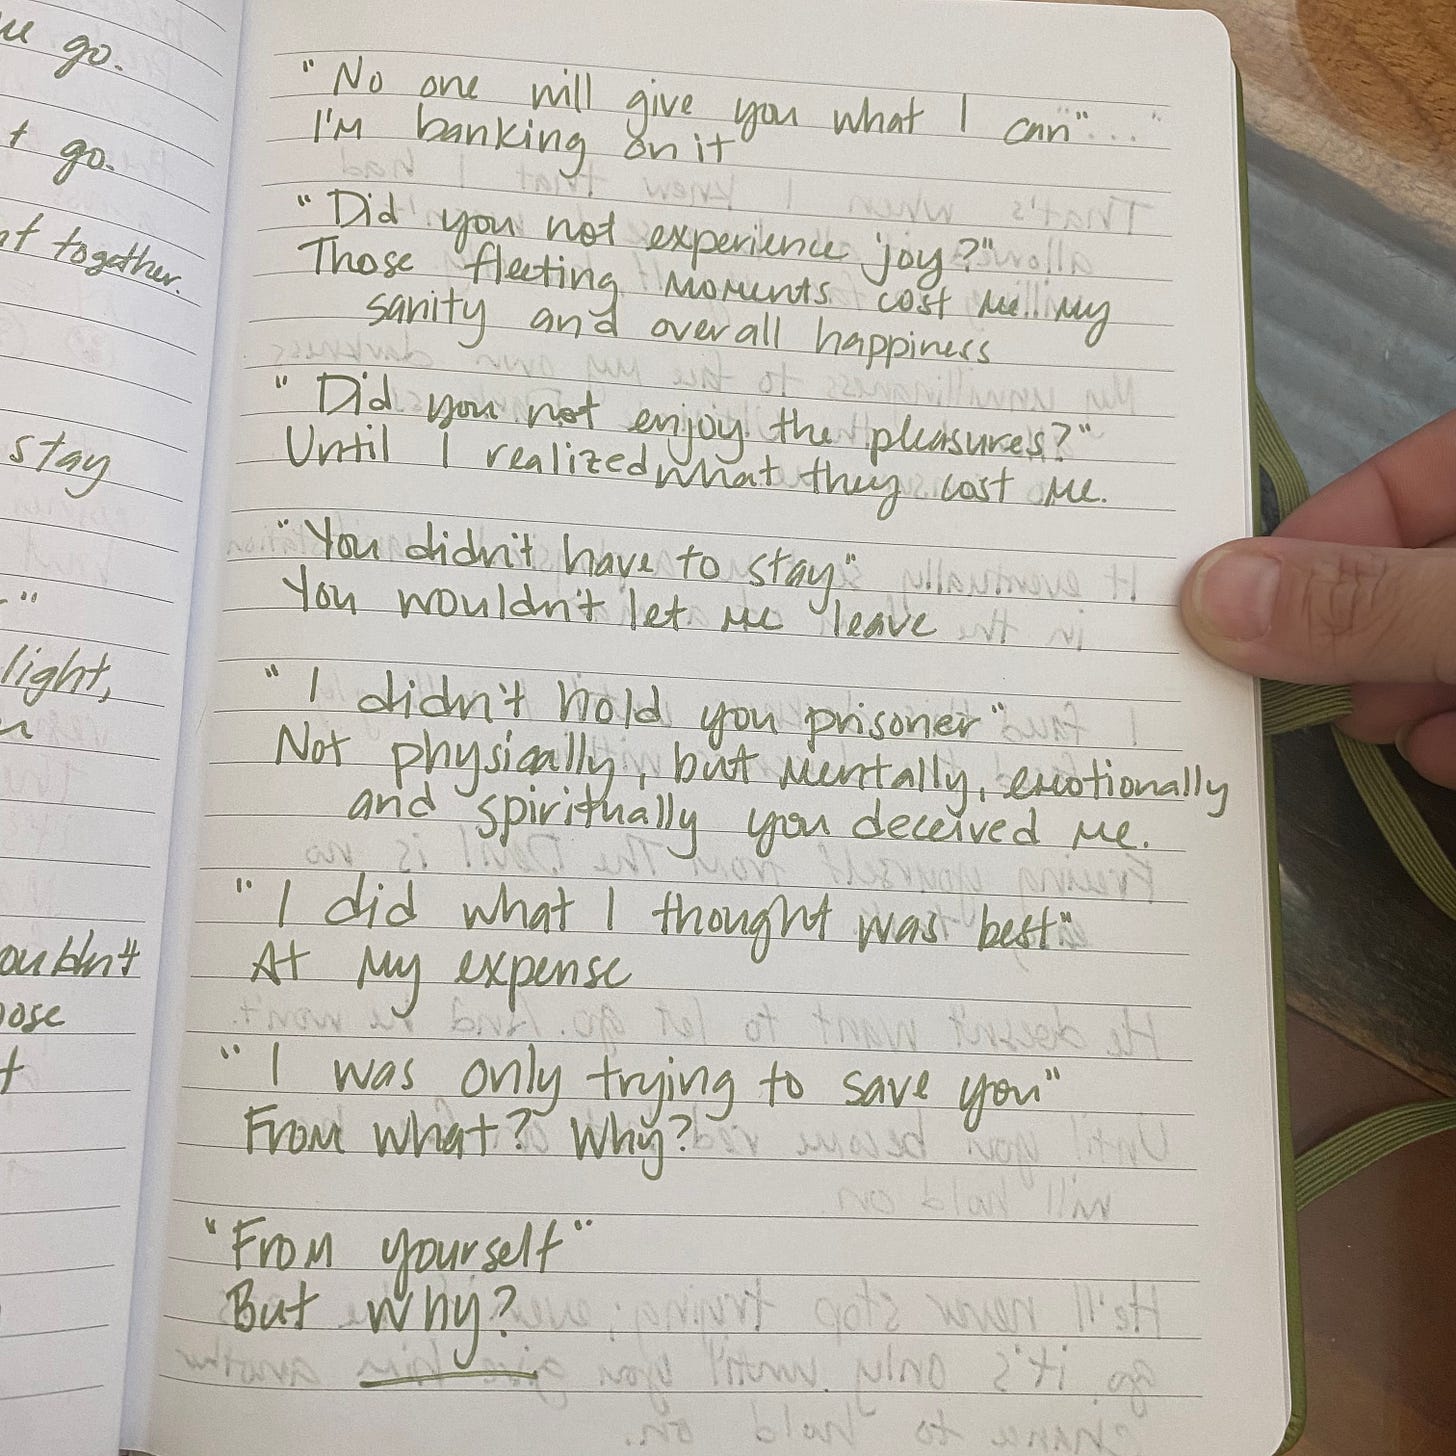 go.
go.
together.
stay
light,
"No one will give you what I can"
I'm banking on it
"Did you not experience joy?"
Those fleeting moments cost me my
sanity and overall happiness
"Did you not enjoy the pleasures?"
Until I realized what they cost me.
"You didn't have to stay"
You wouldn't let me leave
"I didn't hold you prisoner"
Not physically, but mentally, emotionally
and spiritually you deceived me.
"I did what I thought was best"
At my expense
"I was only trying to save you"
From what? Why?
"From yourself"
But why?